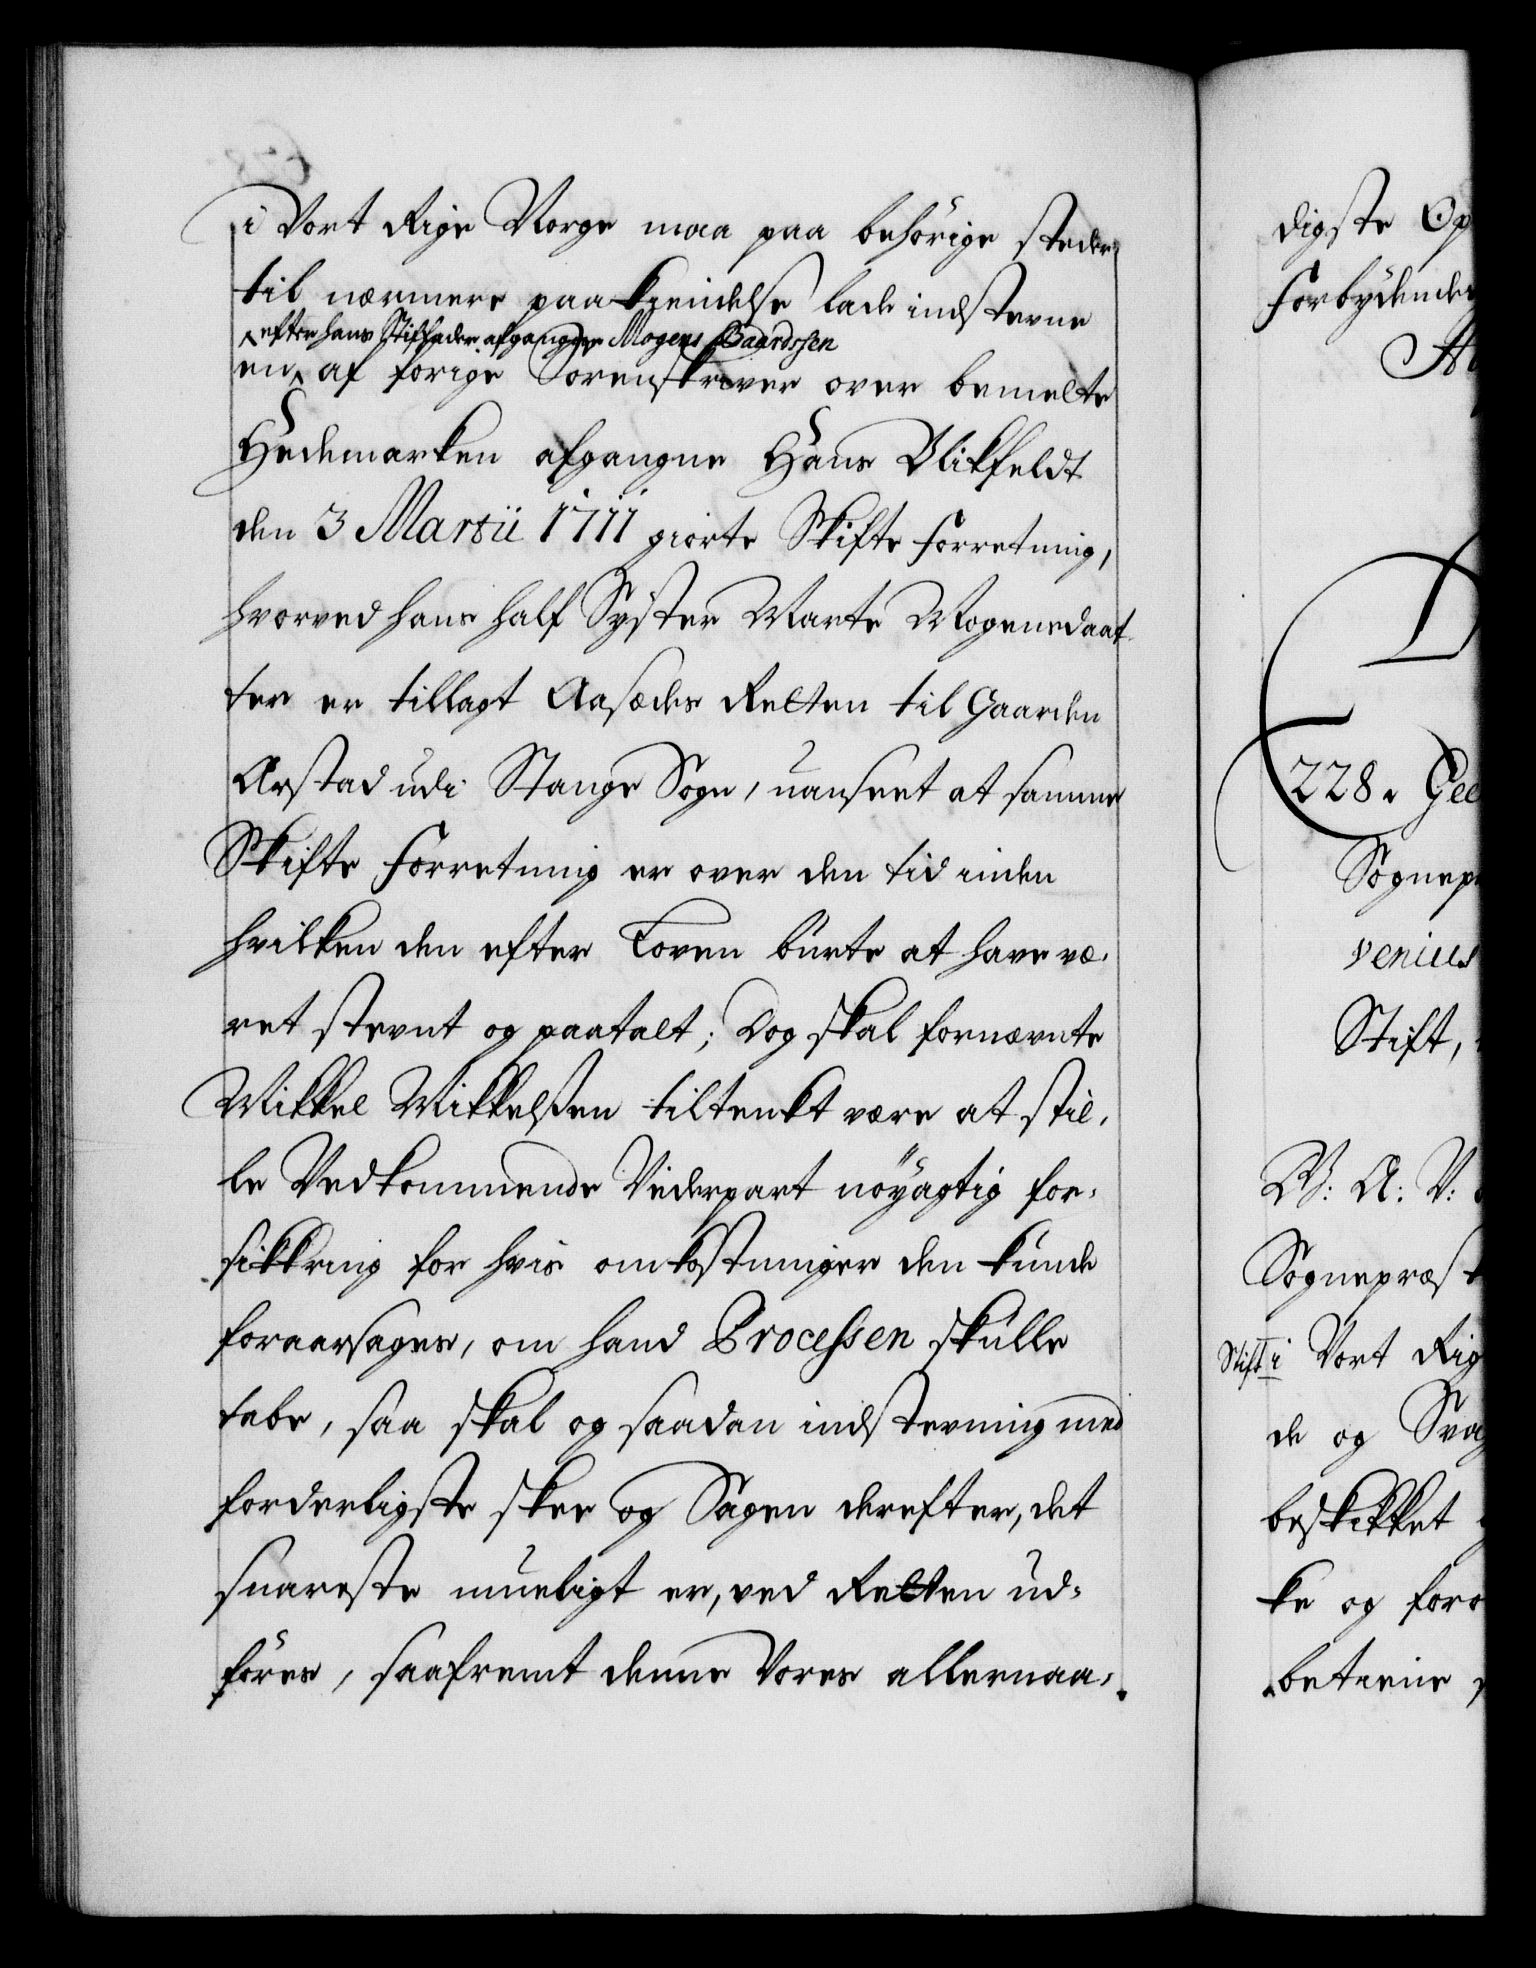 i Vort Rige Norge maa paa behörige steder
til nærmere paakiendelse lade indstevne
^efter hans Stiffader afgangne Mogens Baardssen
en^ af forige Sorenskriver over bemelte
Hedemarken afgangne Hans Blikfeldt
den 3 Martii 1711 giorte Skifte forretning,
hvorved hans half Syster Marte Mogensdaat
ter er tillagt Aasædes Retten til Gaarden
Arstad udi Stange Sogn, uanseet at samme
Skifte forretning er over den tid inden
hvilken den efter Loven burte at have væ-
ret stevnt og paatalt; Dog skal fornævnte
Mikkel Mikkelsen tiltenkt være at stil-
le Vedkommende Vederpart nöyagtig for-
sikkring for hvis omkostninger den kunde
foraarsages, om hand Processen skulle
tabe, saa skal og saadan indstevning med
forderligste skee og Sagen derefter, det
snareste mueligt er, ved Retten ud-
föres, saafremt denne Vores allernaa-
digste Op
Forbydende
228. Gee
Sognepr
venius
Stift,
W: A: V:
Sognepræst
Stift i Vort Rig
de og Sva
beskikket
ke og foro
betiene